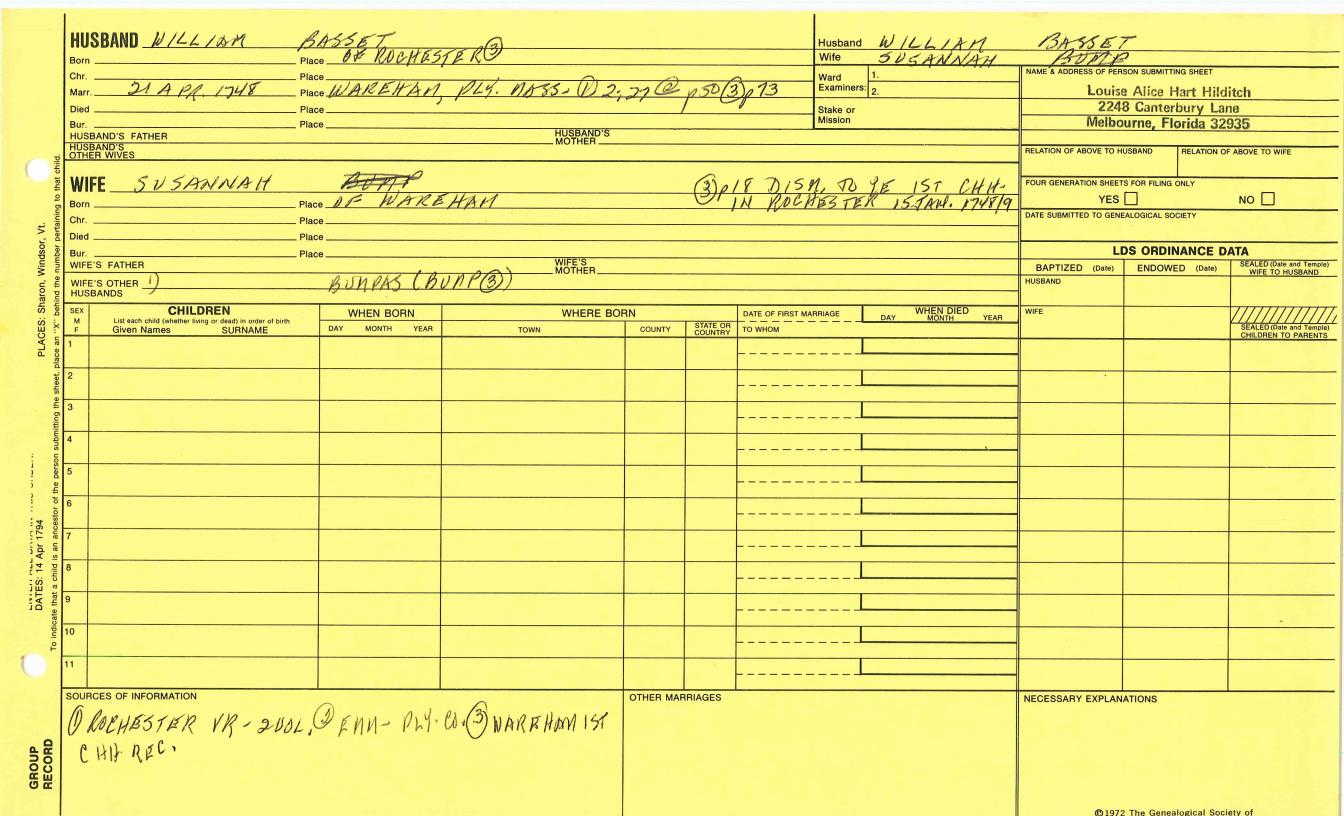 HUSBAND WILLIAM BASSET
Born Place OF ROCHESTER ③
Chr. Place
Marr. 21 APR. 1748 Place WAREHAM, PLY. MASS- ① 2; 27 ② p50 ③ p73
Died Place
Bur. Place
HUSBAND'S FATHER HUSBAND'S MOTHER
HUSBAND'S OTHER WIVES
Husband WILLIAM BASSET
Wife SUSANNAH BUMP
Ward Examiners: 1.
2.
Stake or Mission
NAME & ADDRESS OF PERSON SUBMITTING SHEET
Louise Alice Hart Hilditch
2248 Canterbury Lane
Melbourne, Florida 32935
RELATION OF ABOVE TO HUSBAND RELATION OF ABOVE TO WIFE
FOUR GENERATION SHEETS FOR FILING ONLY
YES NO
DATE SUBMITTED TO GENEALOGICAL SOCIETY
WIFE SUSANNAH BUMP ③ p18 DISM. TO YE 1ST CHH-
Born Place OF WAREHAM IN ROCHESTER 15 JAN. 1748/9
Chr. Place
Died Place
Bur. Place
WIFE'S FATHER WIFE'S MOTHER
WIFE'S OTHER HUSBANDS 1) BUMPAS (BUMP ③)
LDS ORDINANCE DATA
BAPTIZED (Date) ENDOWED (Date) SEALED (Date and Temple) WIFE TO HUSBAND
HUSBAND
WIFE
SEALED (Date and Temple) CHILDREN TO PARENTS
SEX M F
CHILDREN
List each child (whether living or dead) in order of birth
Given Names SURNAME
WHEN BORN
DAY MONTH YEAR
WHERE BORN
TOWN COUNTY STATE OR COUNTRY
DATE OF FIRST MARRIAGE
TO WHOM
WHEN DIED
DAY MONTH YEAR
1
2
3
4
5
6
7
8
9
10
11
SOURCES OF INFORMATION
① ROCHESTER VR - 2 VOL. ② EMM- PLY. CO. ③ WAREHAM 1ST
CHH REC.
OTHER MARRIAGES
NECESSARY EXPLANATIONS
©1972 The Genealogical Society of
PLACES: Sharon, Windsor, Vt.
DATES: 14 Apr 1794
To indicate that a child is an ancestor of the person submitting the sheet, place an "X" behind the number pertaining to that child.
GROUP
RECORD